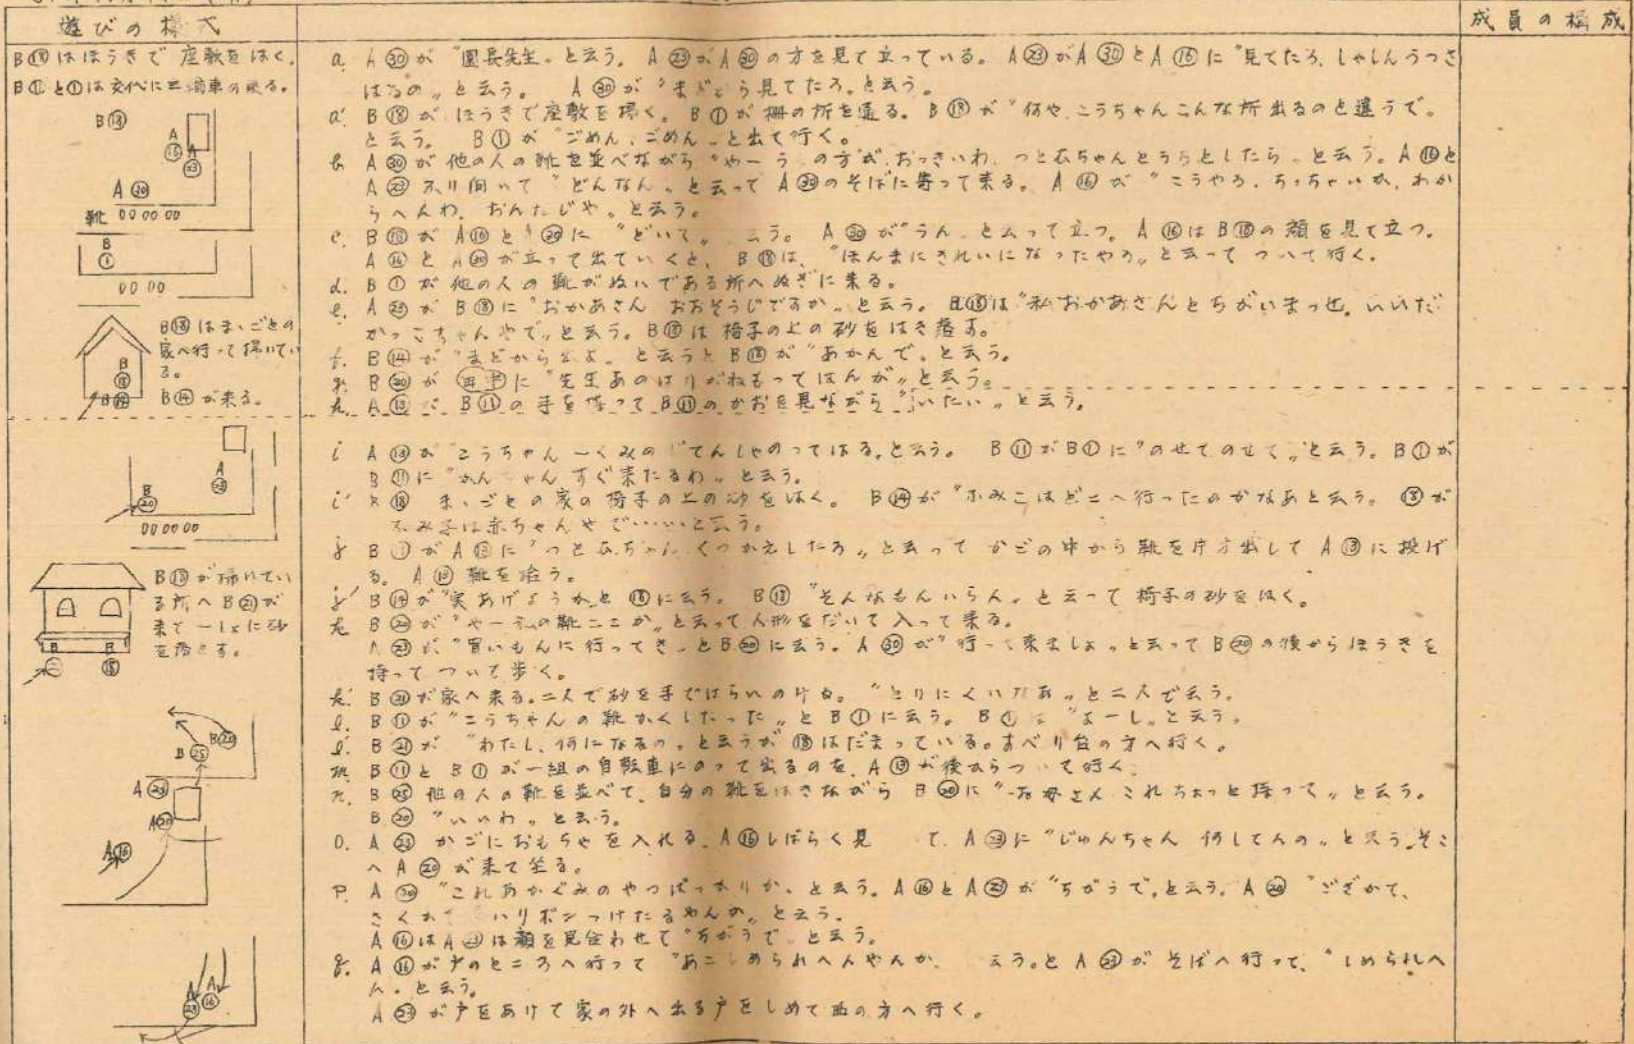 遊びの様式
成員の構成
B⑱はほうきで座敷をはく。
B⑪と①は交代に三輪車に乗る。
B⑱
A⑯
A㉓
A㉚
靴
B①
B⑱はまゝごとの
家へ行って掃いてい
る。
B⑭が来る。
B⑱が掃いてい
る所へB㉑が
来て一しょに砂
を落とす。
a. A㉚が"園長先生"と云う。A㉓がA㉚の方を見て立っている。A㉓がA㉚とA⑯に"見てたろ、しゃしんうつさ
はるの"と云う。 A㉚が"まどから見てたろ"と云う。
a' B⑱がほうきで座敷を掃く。B①が柵の所を通る。B⑱が"何や、こうちゃんこんな所出るのと違うで"
と云う。 B①が"ごめん、ごめん"と出て行く。
b A㉚が他の人の靴を並べながら おっきいわ、 と云う。A⑯と
A㉓ふり向いて"どんなん"と云ってA㉚のそばに寄って来る。A⑯が"こうやろ、ちっちゃいか、わか
らへんわ、おんなじや"と云う。
c. B⑱がA⑯とA㉚に"どいて" 云う。A㉚が"うん"と云って立つ。A⑯はB⑱の顔を見て立つ。
A⑯とA㉚が立って出ていくと、B⑱は、"ほんまにきれいになったやろ"と云ってついて行く。
d. B①が他の人の靴がぬいである所へぬぎに来る。
e. A㉓がB⑱に"おかあさん おおそうじですか"と云う。B⑱は"私おかあさんとちがいまっせ、いいだ
かつこちゃんやで"と云う。B⑱は椅子の上の砂をはき落す。
f. B⑭が"まどから と云うとB⑱が"あかんで"と云う。
g. B⑳が に"先生あのはりがねもってはんが"と云う。
h. A⑬がB⑪の手を持ってB⑪のかおを見ながら"いたい"と云う。
i A⑬が"こうちゃん一くみのじてんしゃのってはる"と云う。 B⑪がB①に"のせてのせて"と云う。B①が
B⑪に すぐ来たるわ"と云う。
i' B⑱ まゝごとの家の椅子の上の砂をはく。 B⑭が"ふみこはどこへ行ったのかなあと云う。⑱が
ふみ子は赤ちゃんやで……と云う。
j B①がA⑬に くつかえしたろ"と云ってかごの中から靴を片方出してA⑬に投げ
る。A⑬靴を拾う。
j' B⑭が"実あげようか"と⑱に云う。B⑱"そんなもんいらん"と云って椅子の砂をはく。
k B⑳が 靴ここか"と云って人形をだいて入って来る。
A㉓が"買いもんに行ってき"とB⑳に云う。A㉚が"行って来ましょ"と云ってB⑳の後からほうきを
持ってついて歩く。
k'. B㉑が家へ来る。二人で砂を手ではらいのける。"とりにくいなあ"と二人で云う。
l. B⑪が"こうちゃんの靴かくしたった"とB①に云う。B①は"よーし"と云う。
l'. B㉑が"わたし、何になるの"と云うが⑱はだまっている。すべり台の方へ行く。
m. B⑪とB①が一組の自転車にのって出るのを、A⑬が後からついて行く。
n. B㉕他の人の靴を並べて、自分の靴をはきながらB⑳に"お母さんこれちょっと持って"と云う。
B⑳"いいわ"と云う。
B⑳
B㉕
A㉓
A⑳
A⑯
o. A㉓かごにおもちゃを入れる。A⑯しばらく見 て、A㉓に"じゅんちゃん 何してんの"と云う。そこ
へA⑳が来て坐る。
p. A⑳"これあかぐみのやつばっかりか"と云う。A⑯とA㉓が"ちがうで"と云う。A⑳
リボンつけたるやんか"と云う。
A⑯はA㉓は顔を見合わせて"ちがうで"と云う。
q. A⑯が戸のところへ行って められへんやんか 云う。とA㉓がそばへ行って、"しめられへ
ん"と云う。
A㉓が戸をあけて家の外へ出る戸をしめて西の方へ行く。